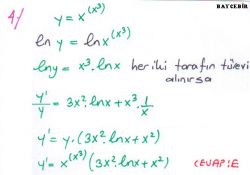 BAYCEBİR
4/ y = x^(x³)
ln y = ln x^(x³)
ln y = x³. ln x her iki tarafın türevi alınırsa
y'/y = 3x². ln x + x³. 1/x
y' = y. (3x². ln x + x²)
y' = x^(x³) (3x². ln x + x²) CEVAP: E